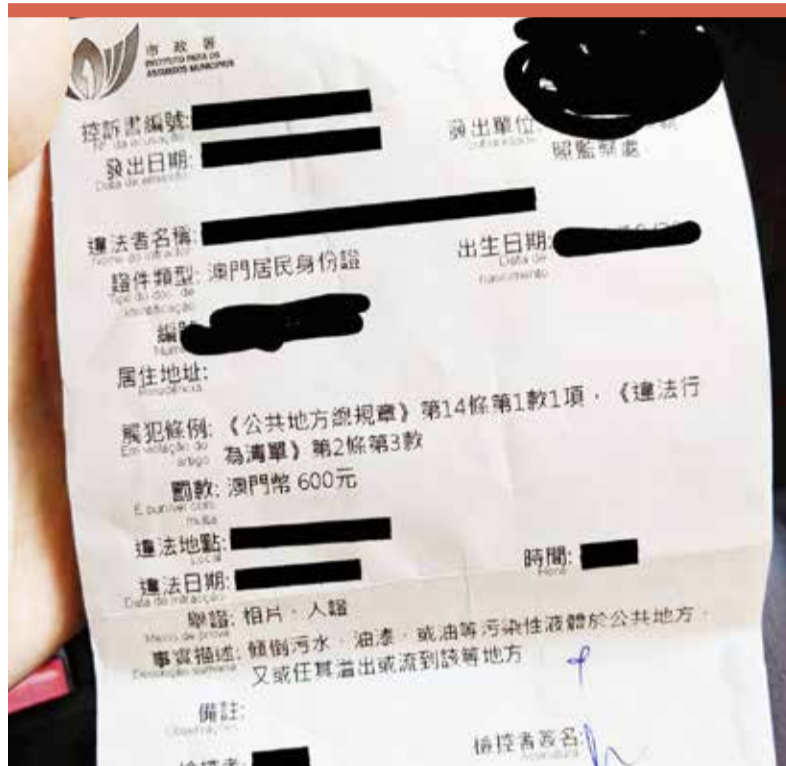 市 政 署
INSTITUTO PARA OS
ASSUNTOS MUNICIPAIS
控訴書編號:
Nº da acusação
發出單位:
發出日期:
Data de emissão
照監察處
違法者名稱:
Nome do infractor
出生日期:
Data de
nascimento
證件類型: 澳門居民身份證
Tipo do doc. de
identificação
編號
居住地址:
Residência
觸犯條例: 《公共地方總規章》第14條第1款1項,《違法行
Em violação do
artigo
為清單》第2條第3款
罰款: 澳門幣 600元
É punível com
multa
違法地點:
Local
時間:
Hora
違法日期:
Data da infracção
舉證: 相片、人證
Meios de prova
事實描述: 傾倒污水、油漆、或油等污染性液體於公共地方,
Descrição sumária
又或任其溢出或流到該等地方
備註:
Observações
檢控者簽名:
Assinatura
檢控者: